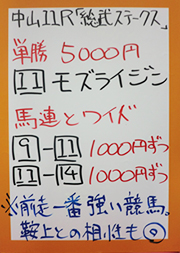 中山11R「総武ステークス」
単勝 5000円
11 モズライジン
馬連とワイド
9-11 1000円ずつ
11-14 1000円ずつ
※前走一番強い競馬。
鞍上との相性も◎